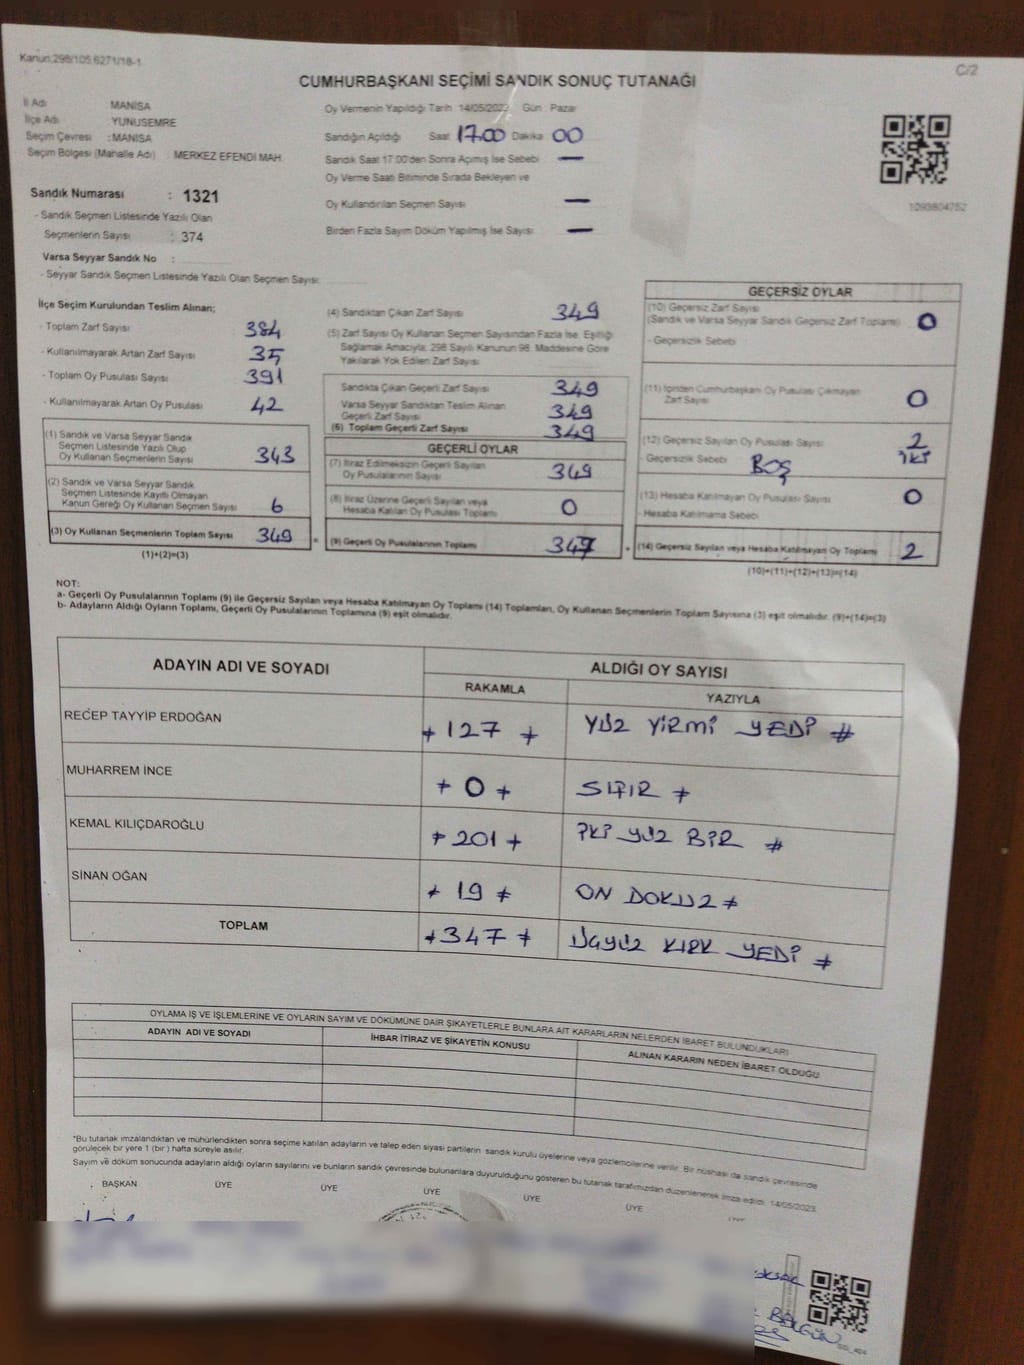 Kanun:298/105 6271/18-1
C/2
CUMHURBAŞKANI SEÇİMİ SANDIK SONUÇ TUTANAĞI
İl Adı MANİSA
İlçe Adı YUNUSEMRE
Seçim Çevresi : MANİSA
Seçim Bölgesi (Mahalle Adı) MERKEZ EFENDİ MAH.
Oy Vermenin Yapıldığı Tarih 14/05/2023 Gün Pazar
Sandığın Açıldığı Saat 17.00 Dakika 00
Sandık Saat 17:00'den Sonra Açılmış İse Sebebi —
Oy Verme Saati Bitiminde Sırada Bekleyen ve
Oy Kullandırılan Seçmen Sayısı —
Birden Fazla Sayım Döküm Yapılmış İse Sayısı —
1093804752
Sandık Numarası : 1321
- Sandık Seçmen Listesinde Yazılı Olan
Seçmenlerin Sayısı : 374
Varsa Seyyar Sandık No :
- Seyyar Sandık Seçmen Listesinde Yazılı Olan Seçmen Sayısı:
İlçe Seçim Kurulundan Teslim Alınan;
- Toplam Zarf Sayısı 384
- Kullanılmayarak Artan Zarf Sayısı 35
- Toplam Oy Pusulası Sayısı 391
- Kullanılmayarak Artan Oy Pusulası 42
(1) Sandık ve Varsa Seyyar Sandık
Seçmen Listesinde Yazılı Olup
Oy Kullanan Seçmenlerin Sayısı 343
(2) Sandık ve Varsa Seyyar Sandık
Seçmen Listesinde Kayıtlı Olmayan
Kanun Gereği Oy Kullanan Seçmen Sayısı 6
(3) Oy Kullanan Seçmenlerin Toplam Sayısı 349
(1)+(2)=(3)
(4) Sandıktan Çıkan Zarf Sayısı 349
(5) Zarf Sayısı Oy Kullanan Seçmen Sayısından Fazla İse, Eşitliği
Sağlamak Amacıyla, 298 Sayılı Kanunun 98. Maddesine Göre
Yakılarak Yok Edilen Zarf Sayısı
Sandıkta Çıkan Geçerli Zarf Sayısı 349
Varsa Seyyar Sandıktan Teslim Alınan
Geçerli Zarf Sayısı 349
(6) Toplam Geçerli Zarf Sayısı 349
GEÇERLİ OYLAR
(7) İtiraz Edilmeksizin Geçerli Sayılan
Oy Pusulalarının Sayısı 349
(8) İtiraz Üzerine Geçerli Sayılan veya
Hesaba Katılan Oy Pusulası Toplamı 0
= (9) Geçerli Oy Pusulalarının Toplamı 347
GEÇERSİZ OYLAR
(10) Geçersiz Zarf Sayısı
(Sandık ve Varsa Seyyar Sandık Geçersiz Zarf Toplamı) 0
- Geçersizlik Sebebi
(11) İçinden Cumhurbaşkanı Oy Pusulası Çıkmayan
Zarf Sayısı 0
(12) Geçersiz Sayılan Oy Pusulası Sayısı 2
Geçersizlik Sebebi BOŞ İKİ
(13) Hesaba Katılmayan Oy Pusulası Sayısı 0
- Hesaba Katılmama Sebebi
+ (14) Geçersiz Sayılan veya Hesaba Katılmayan Oy Toplamı 2
(10)+(11)+(12)+(13)=(14)
NOT:
a- Geçerli Oy Pusulalarının Toplamı (9) ile Geçersiz Sayılan veya Hesaba Katılmayan Oy Toplamı (14) Toplamları, Oy Kullanan Seçmenlerin Toplam Sayısına (3) eşit olmalıdır. (9)+(14)=(3)
b- Adayların Aldığı Oyların Toplamı, Geçerli Oy Pusulalarının Toplamına (9) eşit olmalıdır.
ADAYIN ADI VE SOYADI ALDIĞI OY SAYISI
RAKAMLA YAZIYLA
RECEP TAYYİP ERDOĞAN 127 YÜZ YİRMİ YEDİ
MUHARREM İNCE 0 SIFIR
KEMAL KILIÇDAROĞLU 201 İKİ YÜZ BİR
SİNAN OĞAN 19 ON DOKUZ
TOPLAM 347 ÜÇYÜZ KIRK YEDİ
OYLAMA İŞ VE İŞLEMLERİNE VE OYLARIN SAYIM VE DÖKÜMÜNE DAİR ŞİKAYETLERLE BUNLARA AİT KARARLARIN NELERDEN İBARET BULUNDUKLARI
ADAYIN ADI VE SOYADI İHBAR İTİRAZ VE ŞİKAYETİN KONUSU ALINAN KARARIN NEDEN İBARET OLDUĞU
*Bu tutanak imzalandıktan ve mühürlendikten sonra seçime katılan adayların ve talep eden siyasi partilerin sandık kurulu üyelerine veya gözlemcilerine verilir. Bir nüshası da sandık çevresinde
görülecek bir yere 1 (bir) hafta süreyle asılır.
Sayım ve döküm sonucunda adayların aldığı oyların sayılarını ve bunların sandık çevresinde bulunanlara duyurulduğunu gösteren bu tutanak tarafımızdan düzenlenerek imza edildi. 14/05/2023
BAŞKAN ÜYE ÜYE ÜYE ÜYE ÜYE